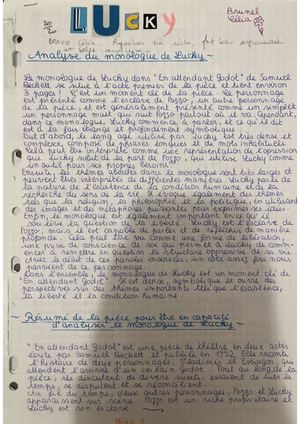 LUCKY
Brunel
Célia
20
20
Bravo Célia. Proposition très riche, fort bien argumentée
Analyse du monologue de Lucky
Le monologue de Lucky dans "En attendant Godot" de Samuel
Beckett se situe à l'acte premier de la pièce et tient environ
3 pages! C'est un moment clé de la pièce. Le personnage
est présenté comme l'esclave de Pozzo, un autre personnage
de la pièce, et est généralement présenté comme un simplet
un personnage muet qui suit Pozzo partout où il va. Cependant,
dans ce monologue, Lucky commence à parler, et ce qu'il dit
est à la fois étrange et profondément symbolique
Tout d'abord, le langage utilisé par Lucky est très dense et
complexe, composé de phrases longues et de mots inhabituels.
Cela peut être interprété comme une représentation de l'oppression
que Lucky subit de la part de Pozzo, qui utilise Lucky comme
un outil pour ses propres besoins.
Ensuite, les thèmes abordés dans le monologue sont très larges et
peuvent être interprétés de différentes manières. Lucky parle de
la nature de l'existence, de la condition humaine et de la
recherche du sens de la vie. Il évoque également des thèmes
tels que la religion, la philosophie et la politique, en utilisant
des images et des métaphores puissantes pour exprimer ses idées.
Enfin, le monologue est également important en ce qu'il
soulève la question de la liberté. Lucky est l'esclave de
Pozzo, mais il est capable de parler et de réfléchir de manière
profonde. Cela peut être vu comme une forme de libération,
une prise de conscience de soi qui permet à Lucky de commencer
à remettre en question la structure oppressive de sa vie.
de ce personnage.
Dans l'ensemble, le monologue de Lucky est un moment clé de
"En attendant Godot". Il est dense, symbolique et ouvre des
perspectives sur des thèmes importants tels que l'existence,
la liberté et la condition humaine
Résumé de la pièce pour être en capacité
d'analyser le monologue de Lucky
"En attendant Godot" est une pièce de théâtre en deux actes
écrite par Samuel Beckett et publiée en 1952. Elle raconte
l'histoire de deux personnages, Vladimir et Estragon, qui
attendent l'arrivée d'un certain Godot. Tout au long de la
pièce, ils discutent de divers sujets, essaient de tuer le
temps, se disputent et se réconcilient.
Au fil du temps, deux autres personnages, Pozzo et Lucky
apparaissent sur scène. Pozzo est un riche propriétaire et
Lucky est son esclave